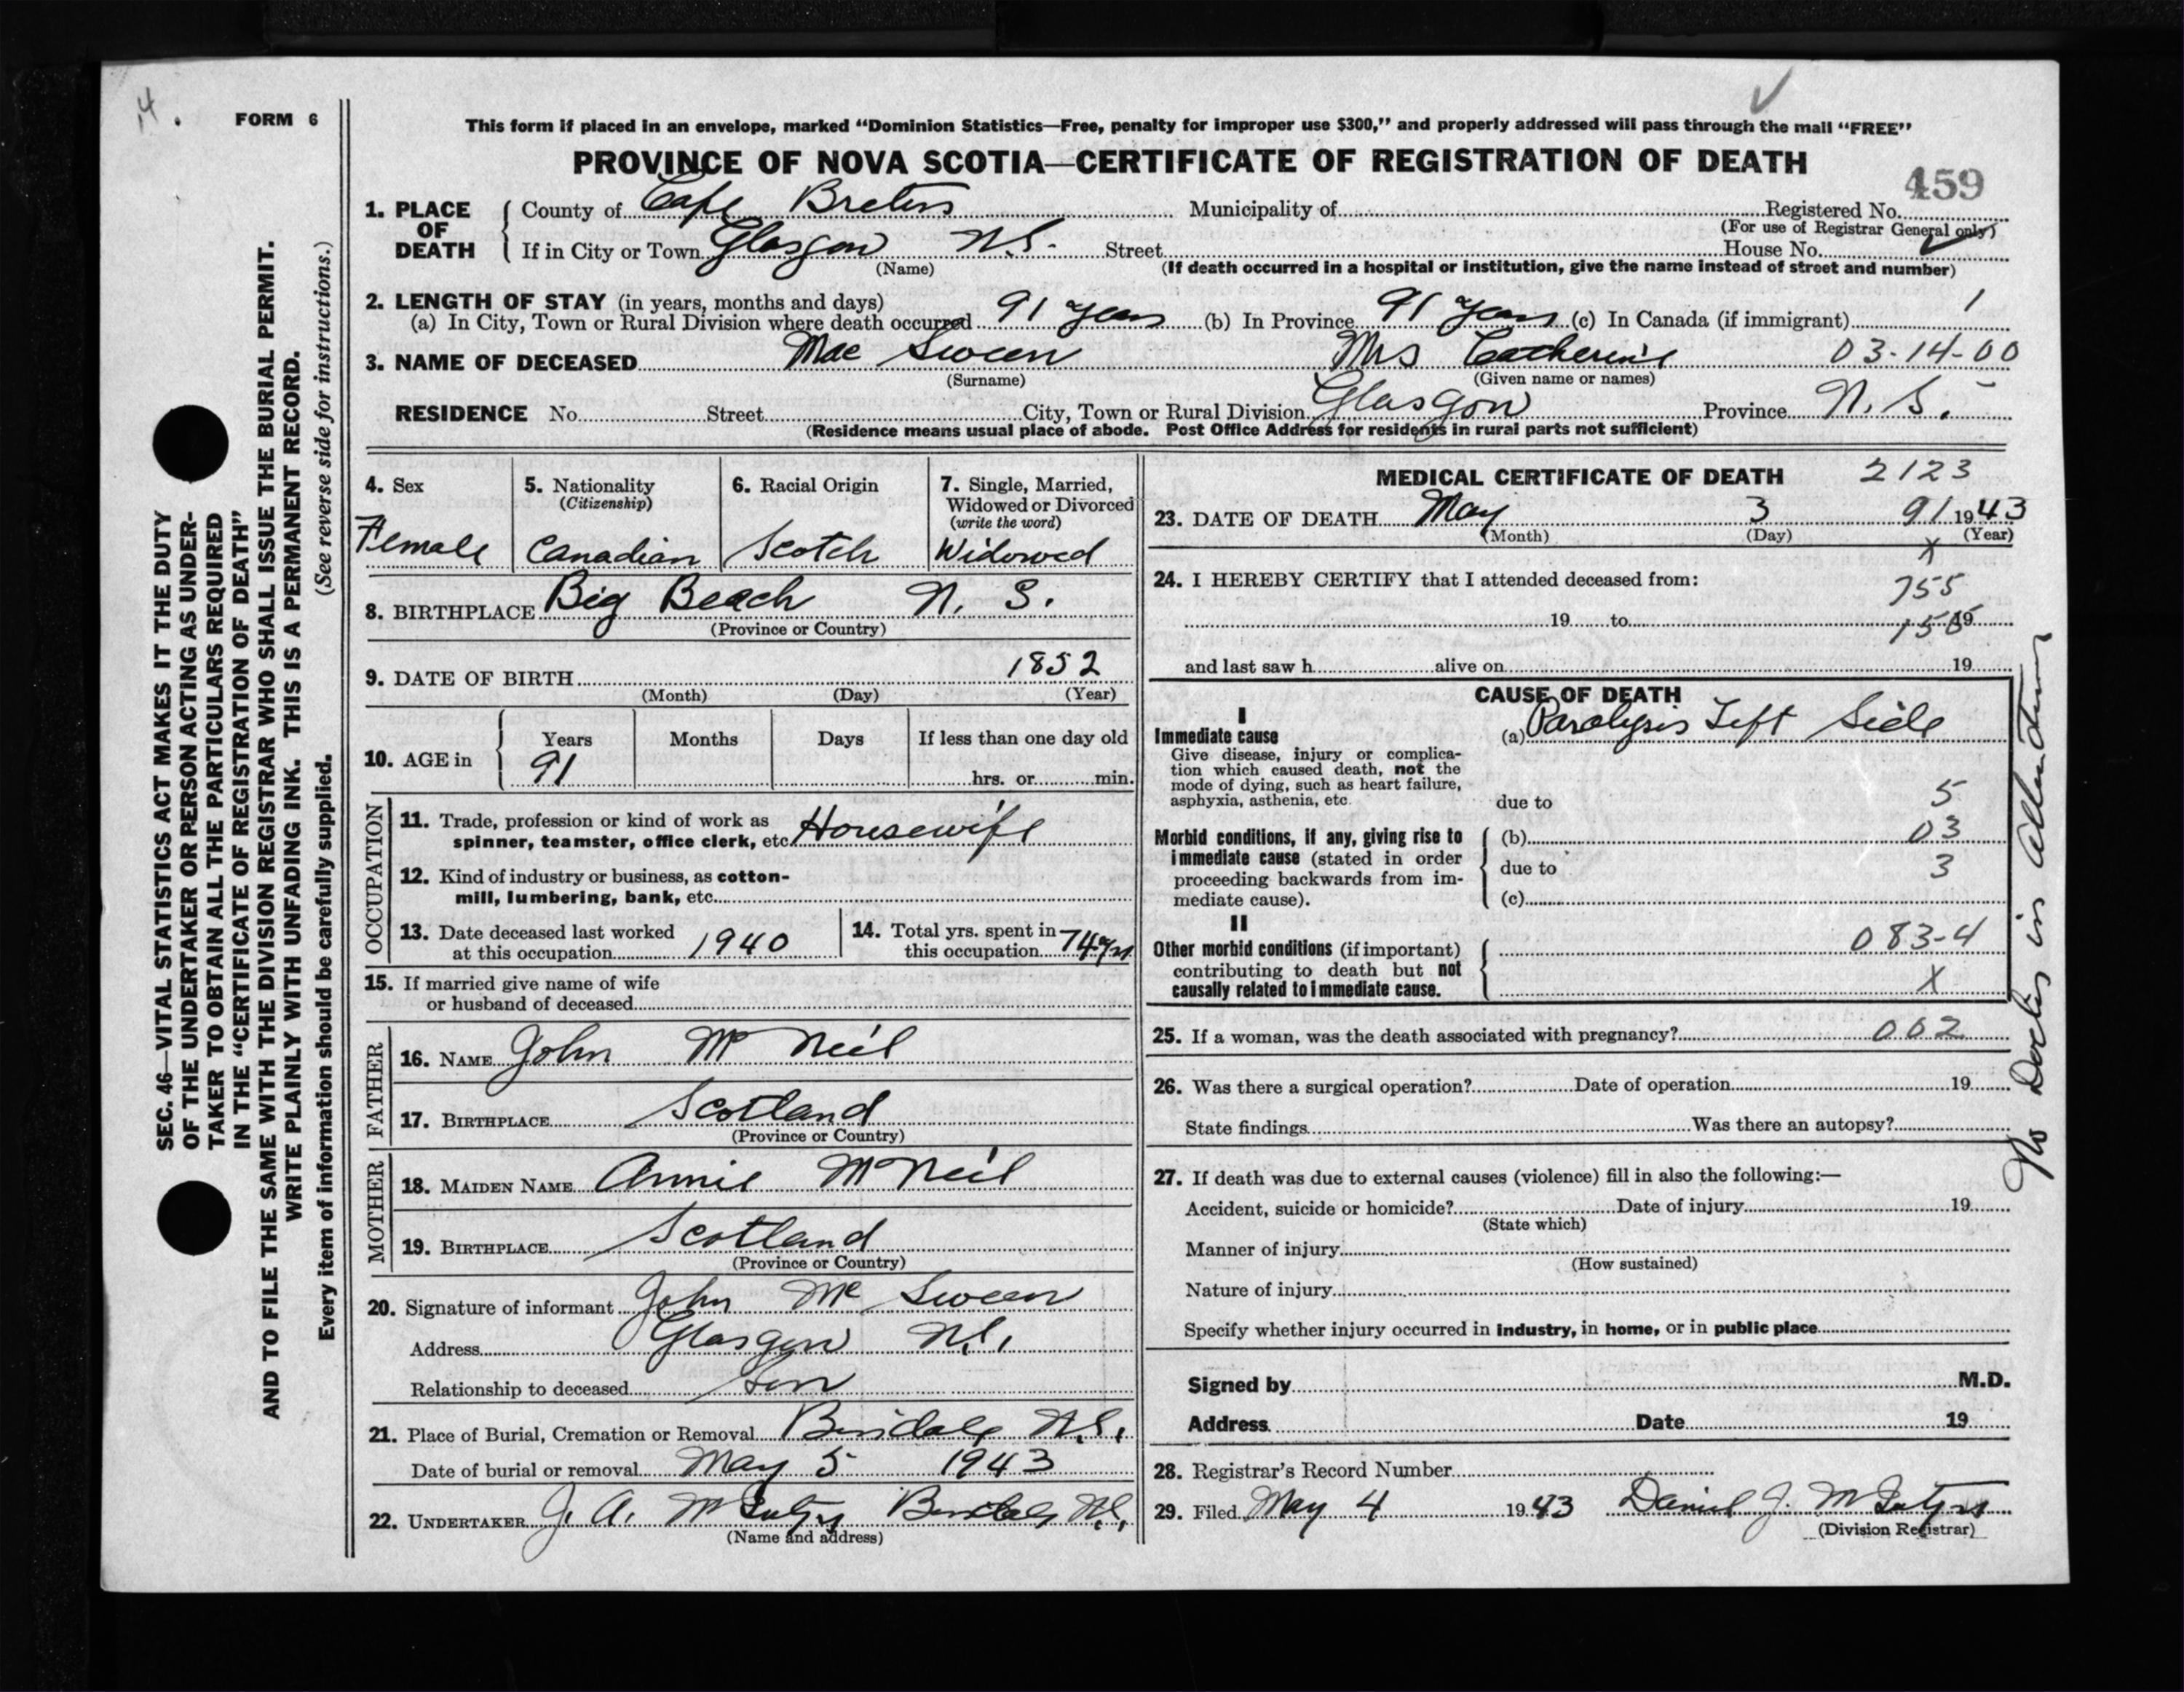 14.
FORM 6
This form if placed in an envelope, marked “Dominion Statistics—Free, penalty for improper use $300,” and properly addressed will pass through the mail “FREE”
PROVINCE OF NOVA SCOTIA—CERTIFICATE OF REGISTRATION OF DEATH
459
1. PLACE OF DEATH
County of Cape Breton Municipality of Registered No.
(For use of Registrar General only)
If in City or Town Glasgow N.S. Street House No.
(Name) (If death occurred in a hospital or institution, give the name instead of street and number)
2. LENGTH OF STAY (in years, months and days)
(a) In City, Town or Rural Division where death occurred 91 years (b) In Province 91 years (c) In Canada (if immigrant) 1
3. NAME OF DECEASED Mac Sween Mrs Catherine 03-14-00
(Surname) (Given name or names)
RESIDENCE No. Street City, Town or Rural Division Glasgow Province N. S.
(Residence means usual place of abode. Post Office Address for residents in rural parts not sufficient)
4. Sex
Female
5. Nationality
(Citizenship)
Canadian
6. Racial Origin
Scotch
7. Single, Married,
Widowed or Divorced
(write the word)
Widowed
8. BIRTHPLACE Big Beach N. S.
(Province or Country)
9. DATE OF BIRTH 1852
(Month) (Day) (Year)
10. AGE in
Years Months Days If less than one day old
91 hrs. or min.
OCCUPATION
11. Trade, profession or kind of work as
spinner, teamster, office clerk, etc. Housewife
12. Kind of industry or business, as cotton-
mill, lumbering, bank, etc.
13. Date deceased last worked
at this occupation 1940
14. Total yrs. spent in
this occupation 74 yrs
15. If married give name of wife
or husband of deceased
FATHER
16. NAME John Mc Neil
17. BIRTHPLACE Scotland
(Province or Country)
MOTHER
18. MAIDEN NAME Annie McNeil
19. BIRTHPLACE Scotland
(Province or Country)
20. Signature of informant John Mc Sween
Address Glasgow N.S.
Relationship to deceased Son
21. Place of Burial, Cremation or Removal N.S.
Date of burial or removal May 5 1943
22. UNDERTAKER J. A. McIntyre N.S.
(Name and address)
MEDICAL CERTIFICATE OF DEATH 2123
23. DATE OF DEATH May 3 91 1943
(Month) (Day) (Year)
X
24. I HEREBY CERTIFY that I attended deceased from:
755
19 to 19
150
and last saw h alive on 19
CAUSE OF DEATH
I
Immediate cause
Give disease, injury or complica-
tion which caused death, not the
mode of dying, such as heart failure,
asphyxia, asthenia, etc.
(a) Paralysis Left Side
due to 5
Morbid conditions, if any, giving rise to
immediate cause (stated in order
proceeding backwards from im-
mediate cause).
(b) 03
due to 3
(c)
II
Other morbid conditions (if important)
contributing to death but not
causally related to immediate cause.
083-4
X
25. If a woman, was the death associated with pregnancy? 002
26. Was there a surgical operation? Date of operation 19
State findings Was there an autopsy?
27. If death was due to external causes (violence) fill in also the following:—
Accident, suicide or homicide? Date of injury 19
(State which)
Manner of injury
(How sustained)
Nature of injury
Specify whether injury occurred in industry, in home, or in public place
Signed by M.D.
Address Date 19
28. Registrar's Record Number
29. Filed May 4 1943 Daniel J. McIntyre
(Division Registrar)
No Doctor in Attendance
SEC. 46—VITAL STATISTICS ACT MAKES IT THE DUTY
OF THE UNDERTAKER OR PERSON ACTING AS UNDER-
TAKER TO OBTAIN ALL THE PARTICULARS REQUIRED
IN THE “CERTIFICATE OF REGISTRATION OF DEATH”
AND TO FILE THE SAME WITH THE DIVISION REGISTRAR WHO SHALL ISSUE THE BURIAL PERMIT.
WRITE PLAINLY WITH UNFADING INK. THIS IS A PERMANENT RECORD.
Every item of information should be carefully supplied. (See reverse side for instructions.)